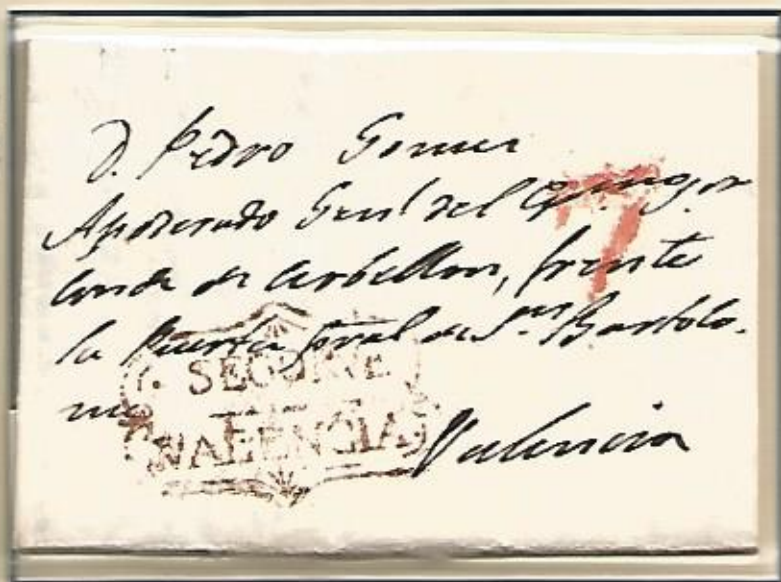 D. Pedro Gomez
Apoderado Genl del
Conde de Cerbellon, frente
la Puerta pral de Sn Bartolo.
me
Valencia
7
SEGORVE
VALENCIA